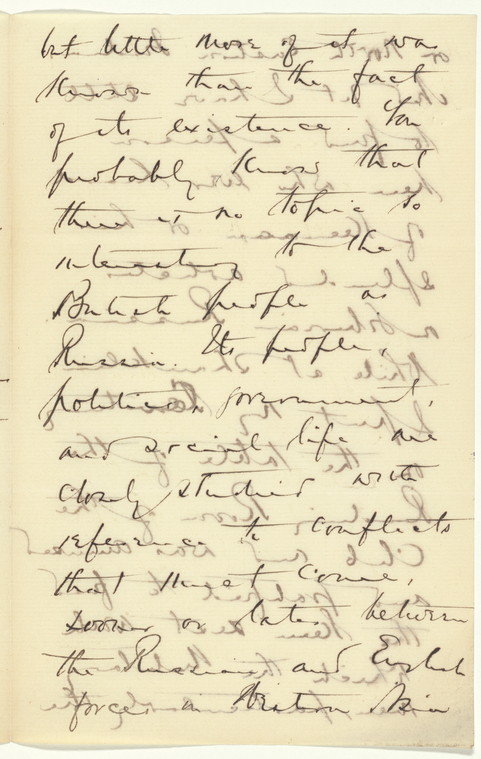 but little more of it was
known than the fact
of its existence. You
probably know that
there is no topic so
interesting to the
British people as
Russia. Its people,
politics, government,
and social life are
closely studied with
reference to conflicts
that must come,
sooner or later between
the Russian and English
forces in Western Asia